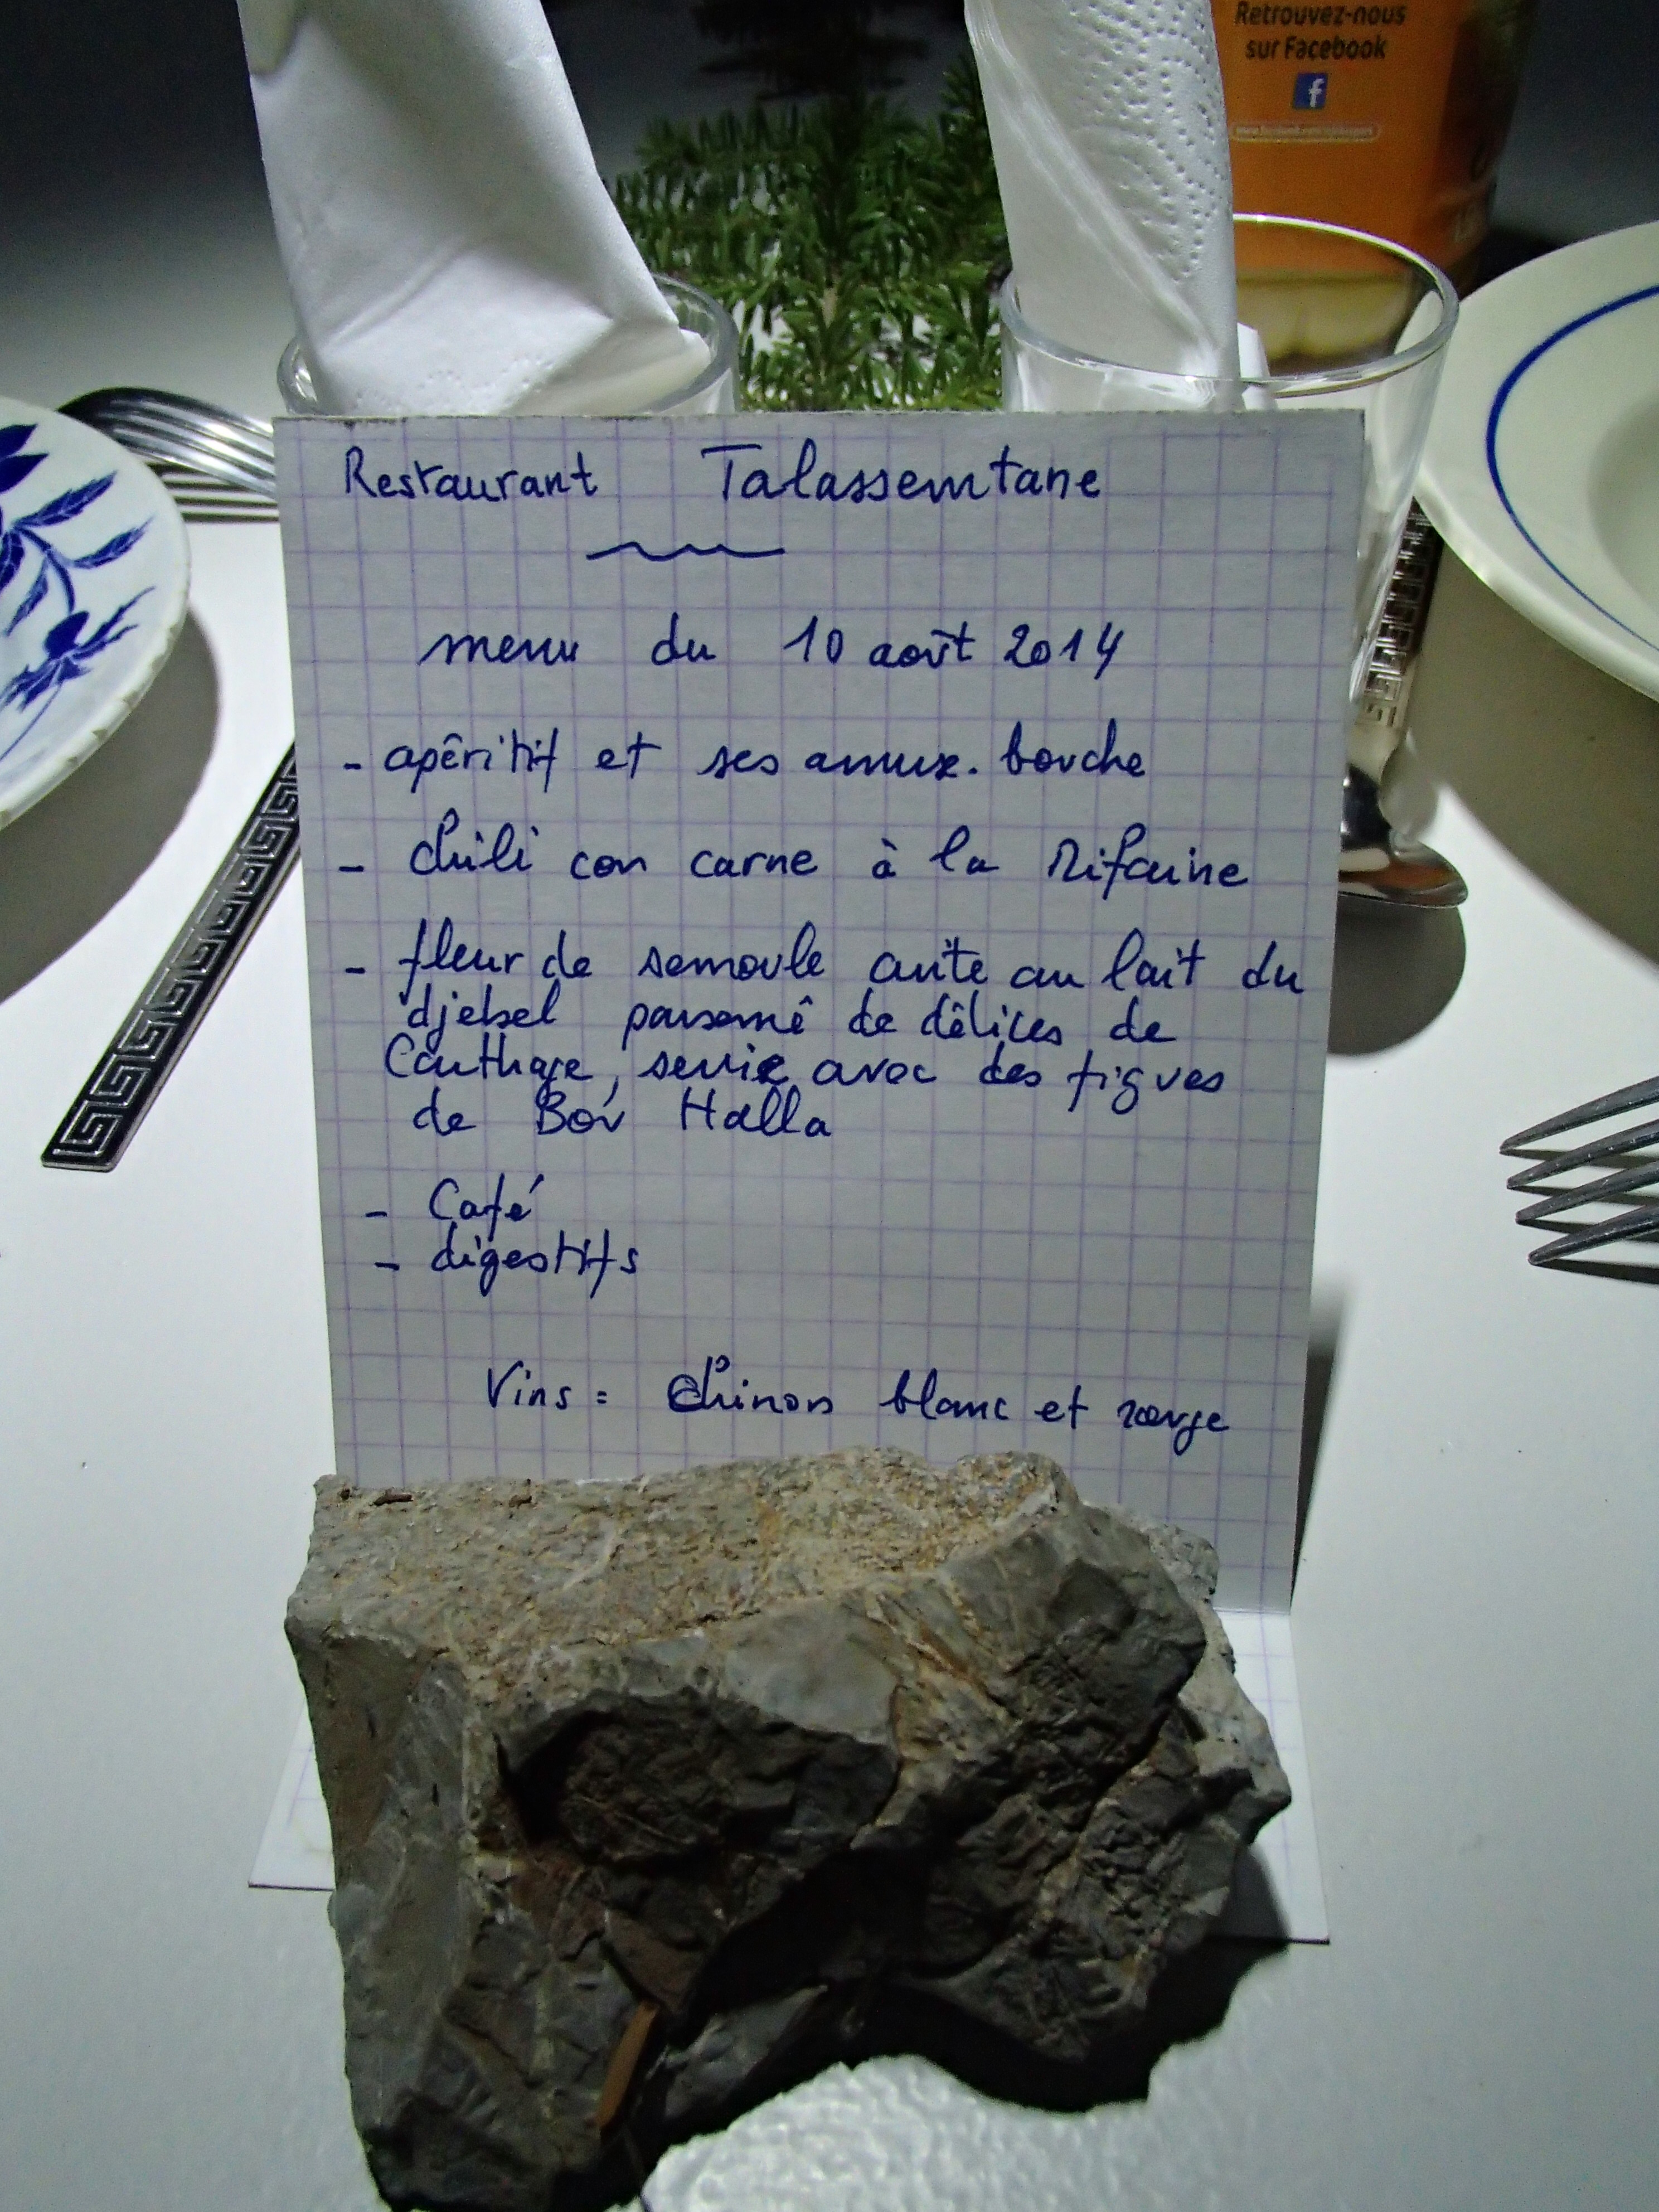 Retrouvez-nous
sur Facebook
f
Restaurant Talassemtane
menu du 10 août 2014
- apéritif et ses amuse-bouche
- chili con carne à la Rifaine
- fleur de semoule cuite au lait du
djebel parsemé de délices de
Carthage, servie avec des figues
de Bou Halla
- Café
- digestifs
Vins = Chinon blanc et rouge